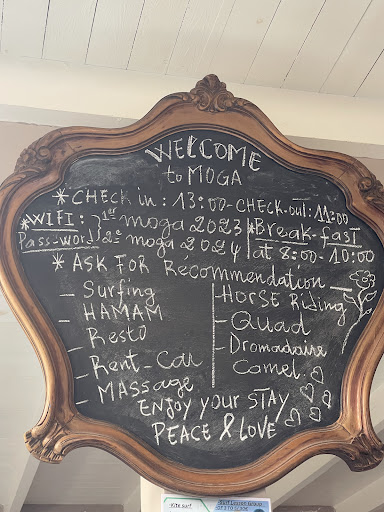 WELCOME
to MOGA
* CHECK in: 13:00 - CHECK-out: 11:00
* WIFI: } 1er moga 2023
Pass-word } 2e moga 2024
* Break-fast
at 8:00 - 10:00
* ASK FOR Recommendation
- Surfing
- HAMAM
- Resto
- Rent-Car
- MASSage
- HORSE Riding
- Quad
- Dromadaire
Camel.
ENJOY your STAY
PEACE & LOVE
Kite surf